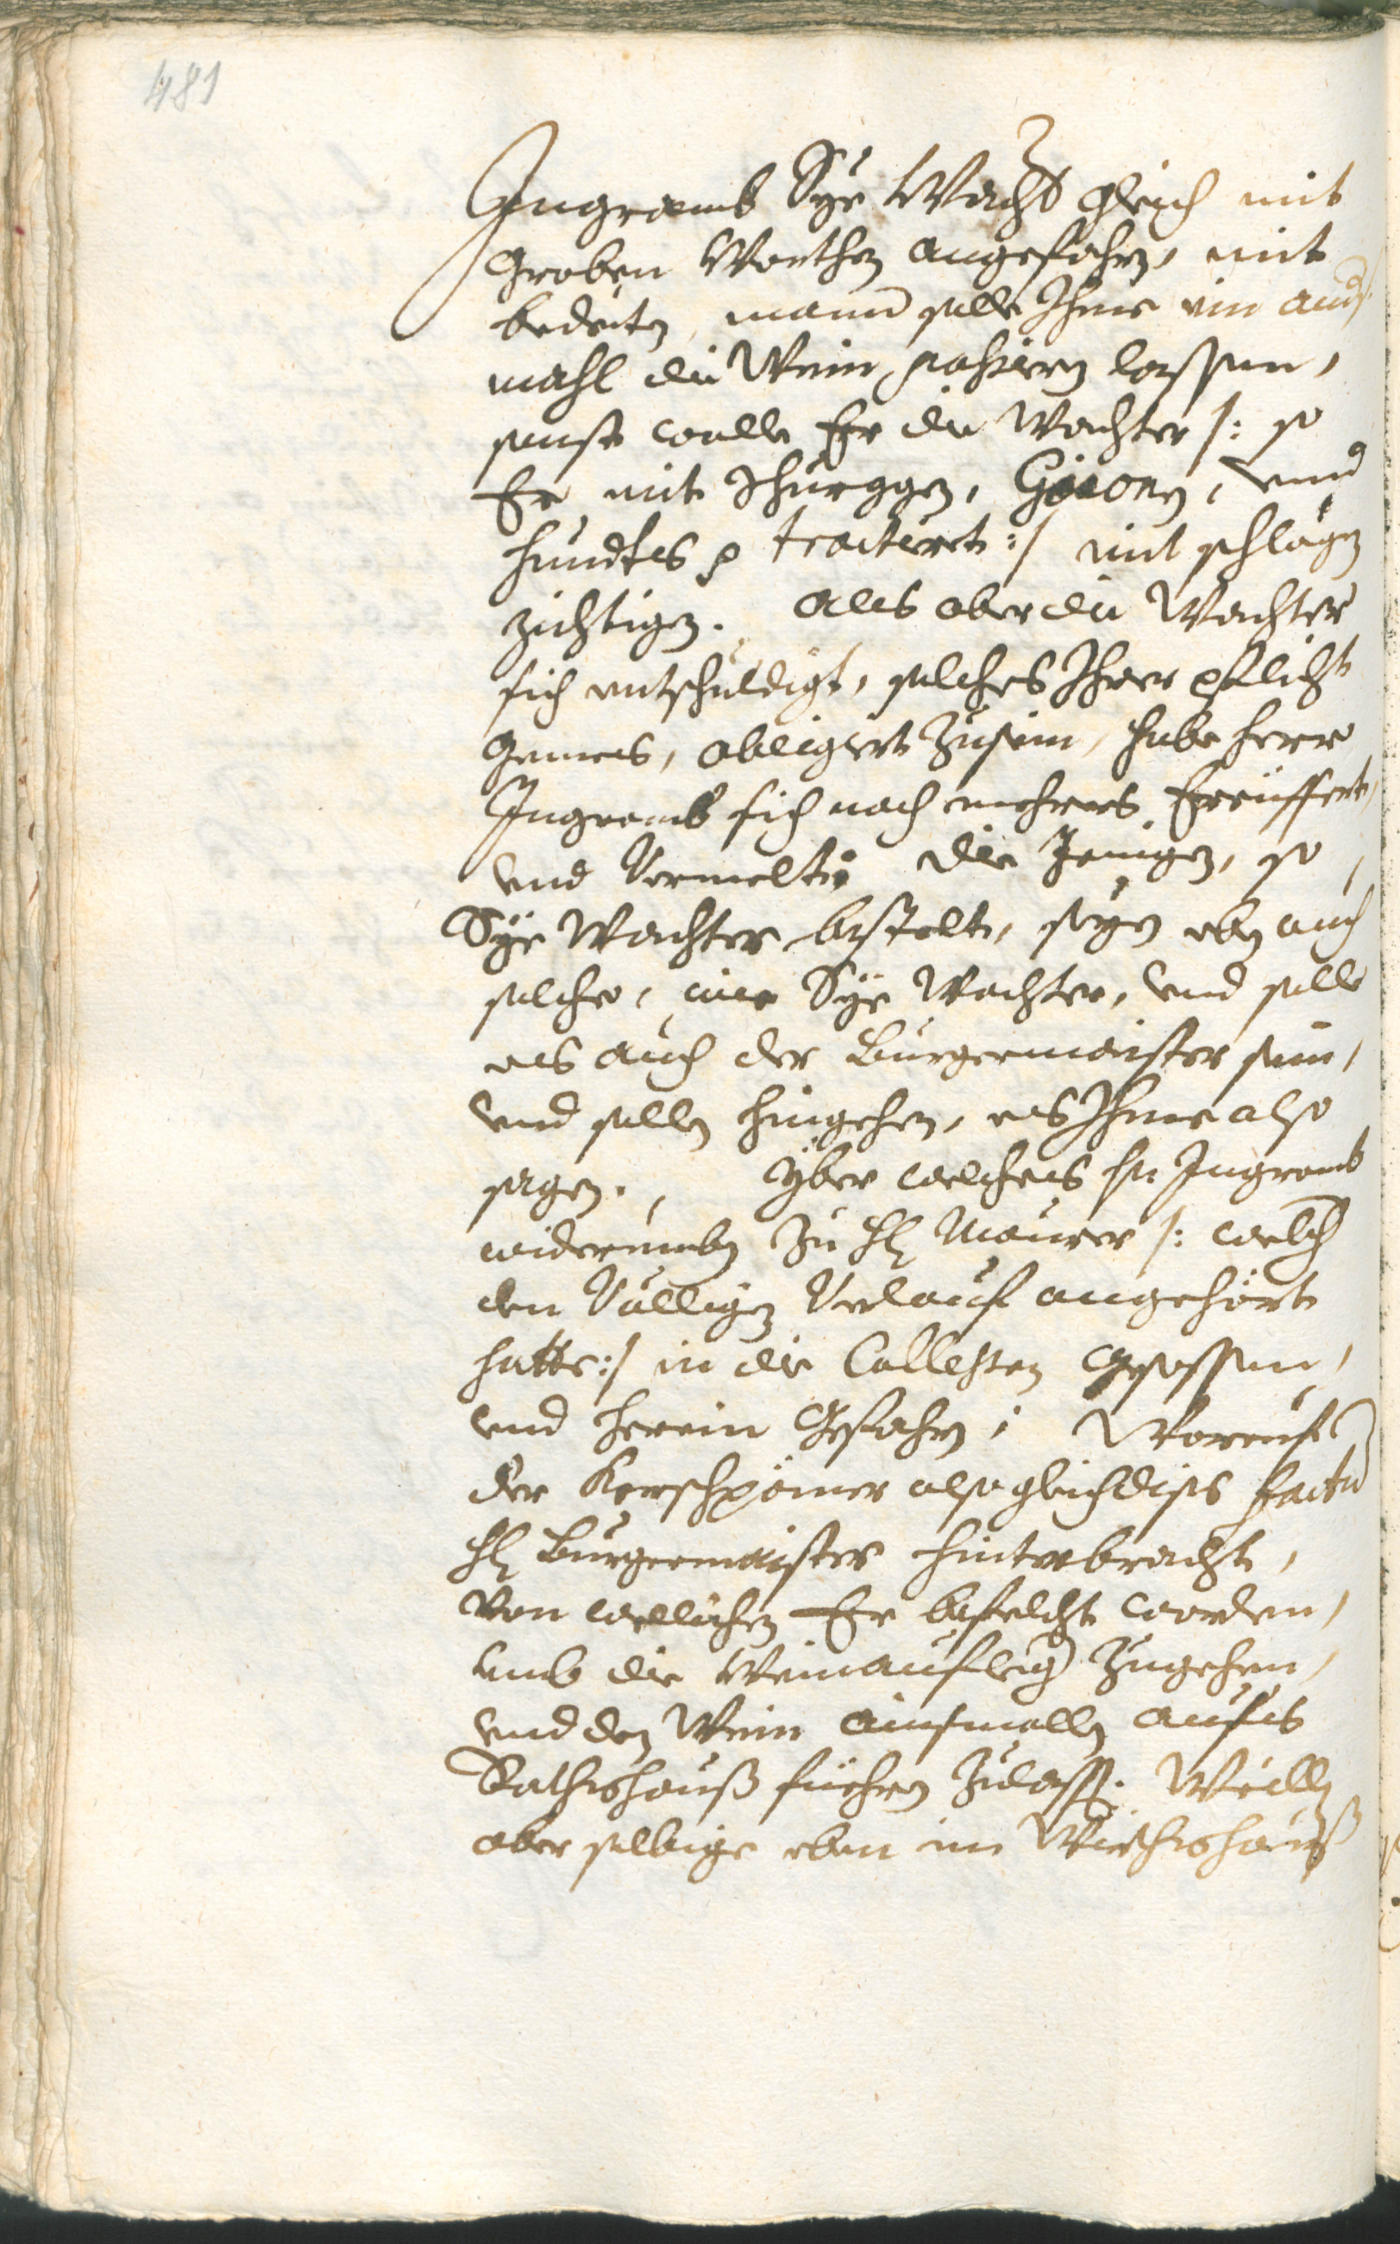 481
Ingramb Sÿe Wacht gleich mit
Groben Worthen angefahrn, mit
bedeiten, mann solle Ihme ein and
mahl die Wein passiern lassen,
sonst wolle Er die Wachter /: so
Er mit Schurggen, und
hundtes p tractiret :/ mit schlägen
zichtigen. Als aber die Wachter
sich entschuldigt, solches Ihrer pflicht
Gemes, obligiert zusein, habe herr
Ingramb sich noch mehrers Ereiffert,
und Vermelt: die Jenigen, so
Sÿe Wachter bestelt, seÿen eben auch
solche, wie Sÿe Wachter, und solle
es auch der Burgermaister sein,
und sollen hingehen, es Ihme also
sagen. Yber welches hr Ingramb
widerumben zu H: Maurer /: welch
den Völligen Verlauf angehört
hatte :/ in die Callessen Gesessen,
und herein Gefahrn; Worauf
der Kerschpämer alsogleich dises factum
H: Burgermaister hinterbracht,
von wellichen Er befelcht worden,
umb die Weinaufleg zugehen,
und den Wein ainsmallen aufs
Rathshauß füehren zulassen. Weillen
aber selbige eben im Wirthshauß